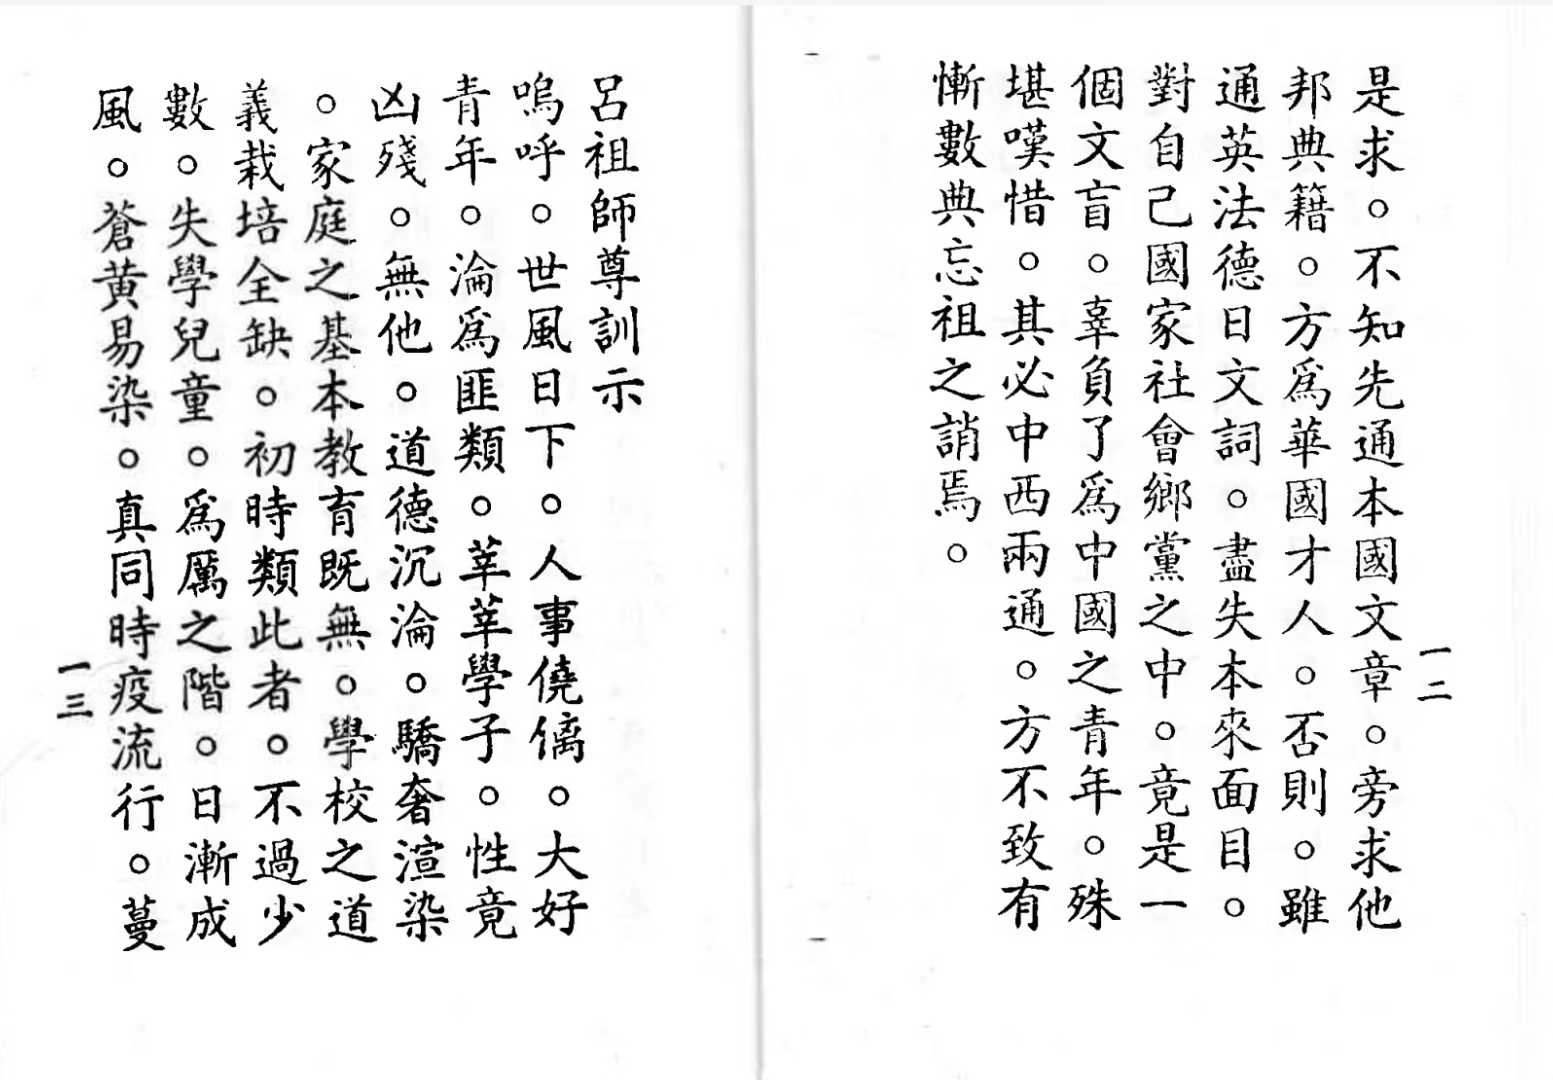 是求。不知先通本國文章。旁求他
邦典籍。方爲華國才人。否則。雖
通英法德日文詞。盡失本來面目。
對自己國家社會鄉黨之中。竟是一
個文盲。辜負了爲中國之青年。殊
堪嘆惜。其必中西兩通。方不致有
慚數典忘祖之誚焉。
一二
呂祖師尊訓示
嗚呼。世風日下。人事僥㒆。大好
青年。淪爲匪類。莘莘學子。性竟
凶殘。無他。道德沉淪。驕奢渲染
。家庭之基本教育既無。學校之道
義栽培全缺。初時類此者。不過少
數。失學兒童。爲厲之階。日漸成
風。蒼黄易染。真同時疫流行。蔓
一三